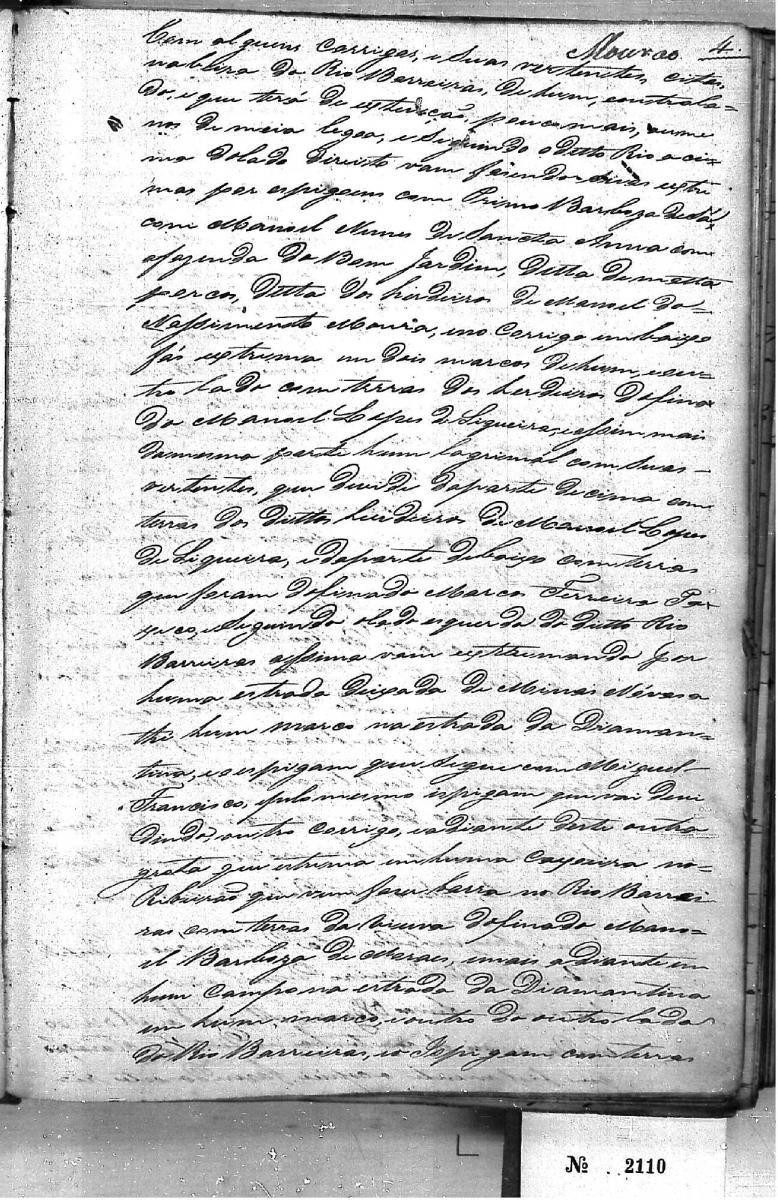 Mourão 4.
Com alguns corrigos, e suas vertentes, citas
na beira do Rio Barreiras, de hum, e outro la-
do, e que terá de extenção, pouco mais, ou me
nos de meia legoa, e seguindo o ditto Rio a ci-
ma do lado direito vam fasendo suas extre
mas por espigoens com Primo Barboza de Sá
com Manoel Nunes de Sancta Anna com
a fazenda do Bom Jardim, ditta de matta
porcos, ditta dos herdeiros de Manoel do
Nassimento Moura, e no corrigo em baixo
fas extrema em dois marcos de hum, e ou-
tro lado com terras dos herdeiros do fina
do Manoel Lopes de Siqueira, e assim mais
da mesma parte hum lagrimal com suas
vertentes, que devide da parte de cima com
terras dos dittos herdeiros de Manoel Lopes
de Siqueira, e da parte de baixo com terras
que foram do finado Marcos Ferreira Pa
xeco, e seguindo o lado esquerdo do ditto Rio
Barreiras assima vam extremando por
huma estrada deixada de Minas Novas a
thé hum marco na estrada da Diaman-
tina, e o espigam que segue com Miguel
Francisco, e pelo mesmo espigam que vai devi
dindo, outro corrigo, e adiante deste outra
grota que estrema em huma caxoeira no
Ribeirão que vem faser barra no Rio Barrei
ras com terras da viuva do finado Mano-
el Barboza de Moraes, e mais a diante em
hum campo na estrada da Diamantina
em hum marco, e outro do outro lado
do Rio Barreiras, e o Espigam com terras
Nº 2110